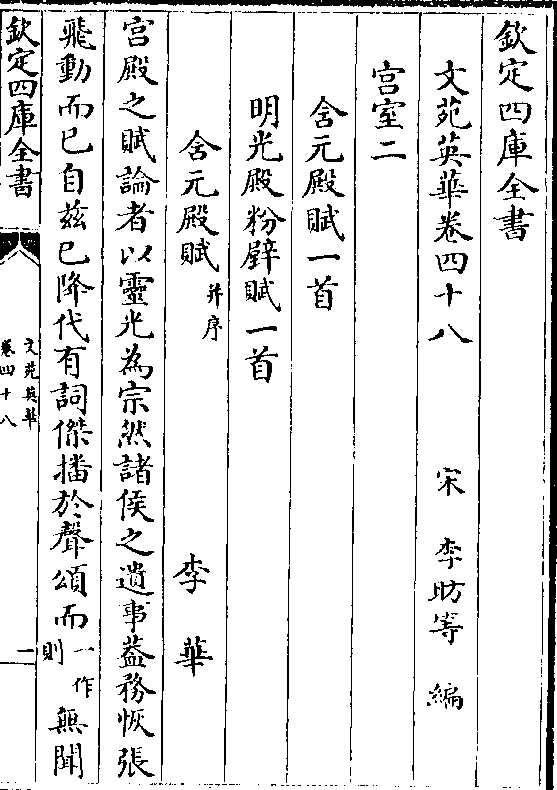 欽定四庫全書
文苑英華卷四十八
宋 李昉等 編
宫室二
含元殿賦一首
明光殿粉壁賦一首
含元殿賦并序
李華
宫殿之賦論者以靈光為宗然諸侯之遺事葢務恢張
飛動而已自兹已降代有詞傑播於聲頌而一作則無聞
欽定四庫全書
文苑英華
卷四十八
一